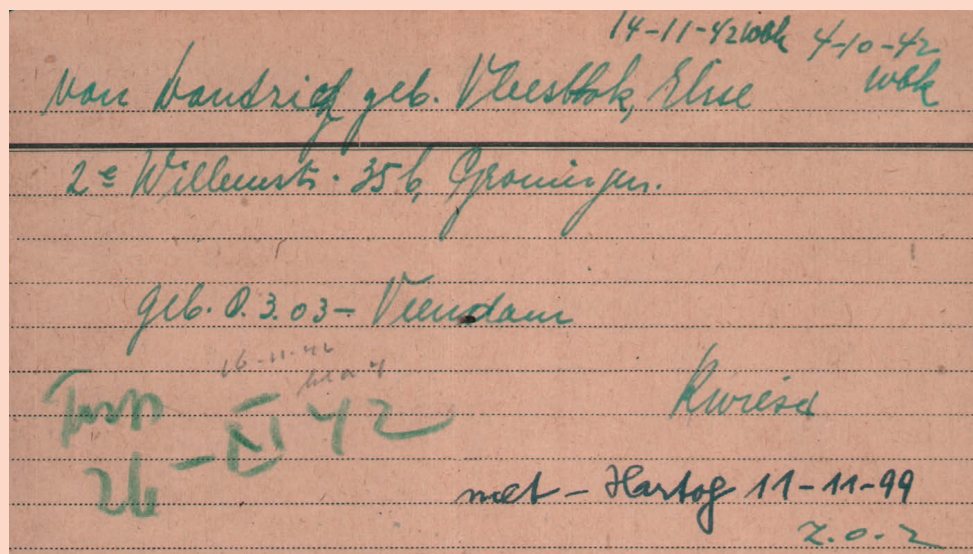 14-11-42 wbk 4-10-42
wbk
van Dantzig geb. Vleeschhok, Elise
2e Willemstr. 35b, Groningen.
geb. 8.3.03 - Veendam
16-11-42
Trsp
26-XI 42
met - Hartog 11-11-99
z.o.z